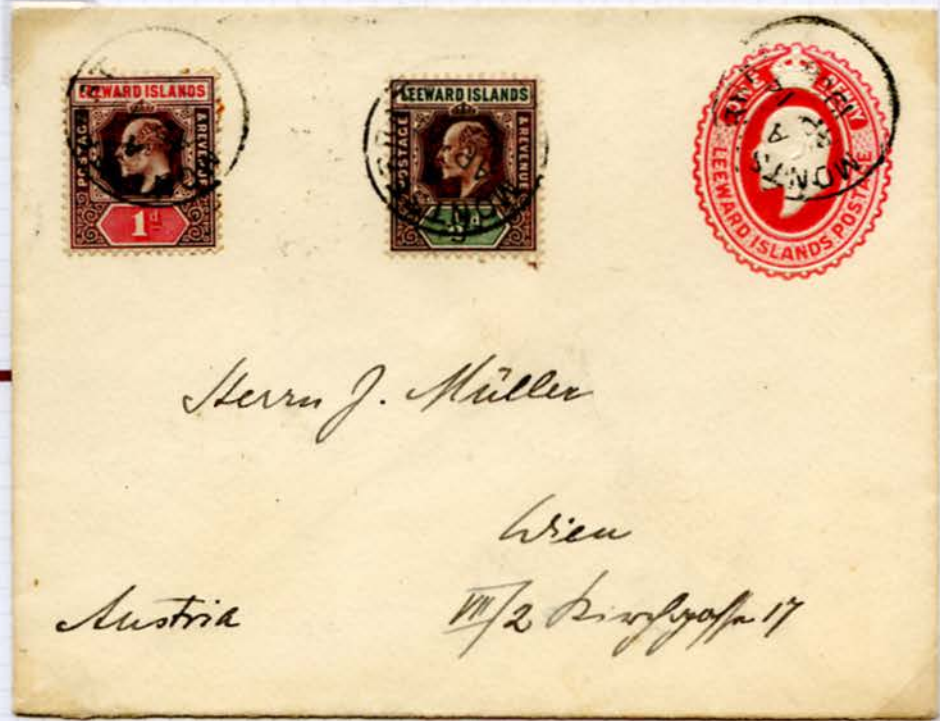 LEEWARD ISLANDS
POSTAGE
& REVENUE
1d
LEEWARD ISLANDS
POSTAGE
& REVENUE
ONE PENNY
LEEWARD ISLANDS POSTAGE
Herrn J. Müller
Wien
Austria
VII/2 Kirchgasse 17